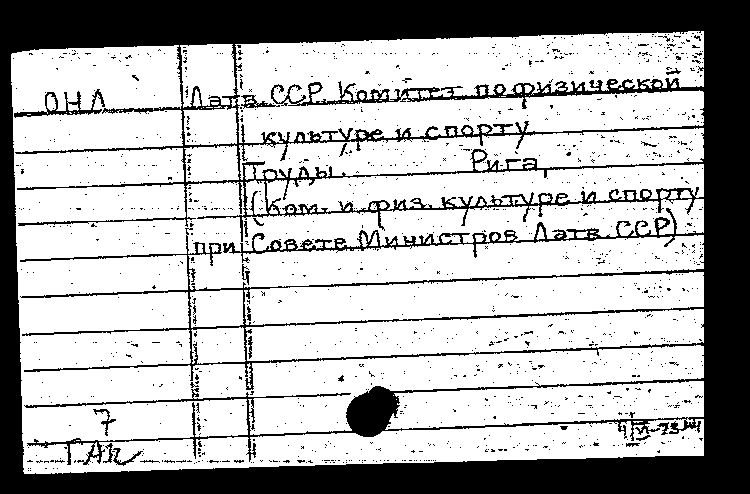 ОНЛ Латв. ССР. Комитет по физической
культуре и спорту
Труды. Рига,
(Ком. п. физ. культуре и спорту
при Совете Министров Латв. ССР)
7
ГАК